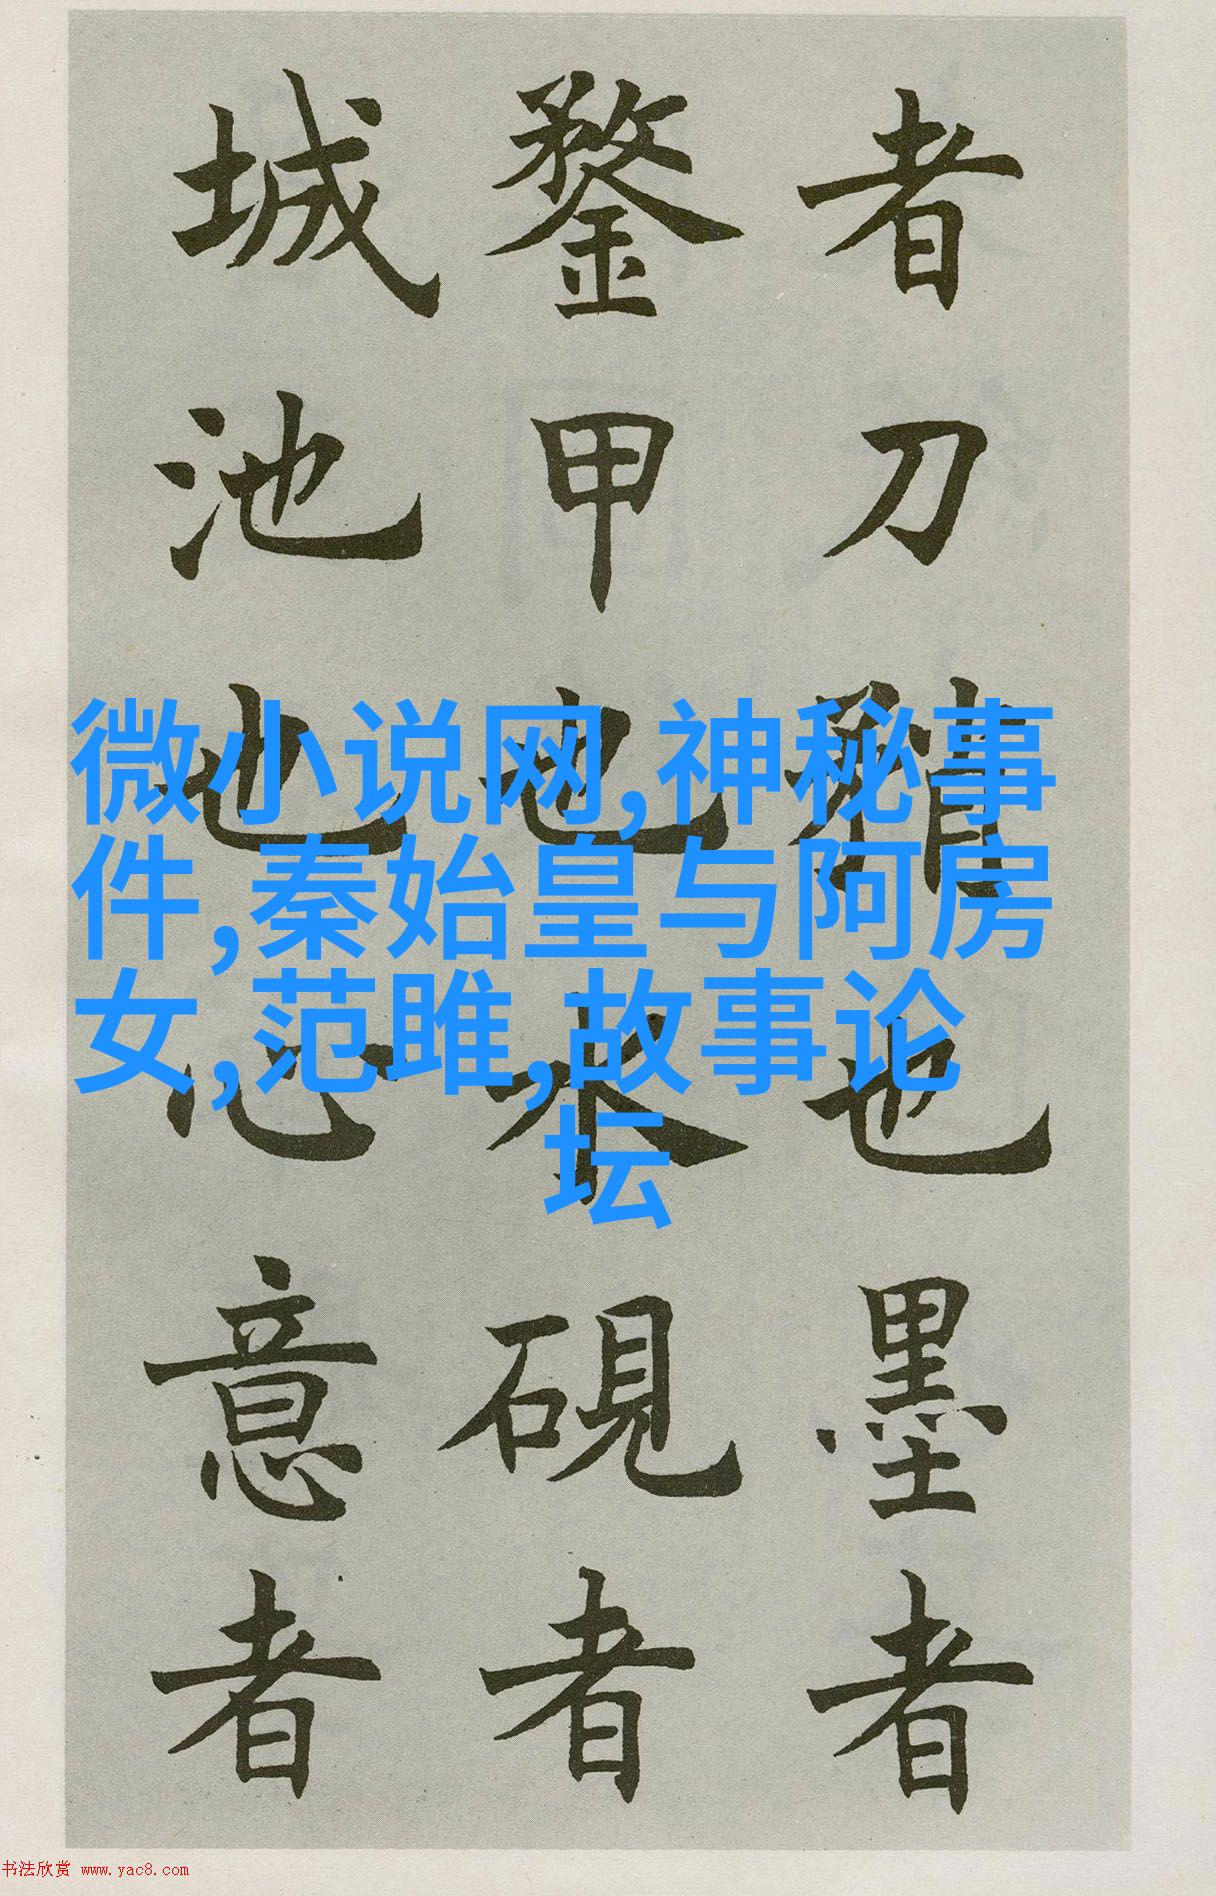 者刀矟也墨者
鍪甲也水硯者
城池也心意者
微小说网,神秘事
件,秦始皇与阿房
女,范雎,故事论
坛
书法欣赏 www.yac8.com